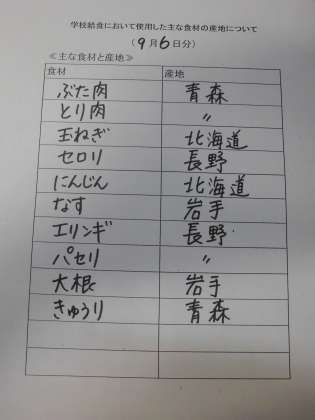 学校給食において使用した主な食材の産地について
(9月6日分)
≪主な食材と産地≫
食材 産地
ぶた肉 青森
とり肉 〃
玉ねぎ 北海道
セロリ 長野
にんじん 北海道
なす 岩手
エリンギ 長野
パセリ 〃
大根 岩手
きゅうり 青森